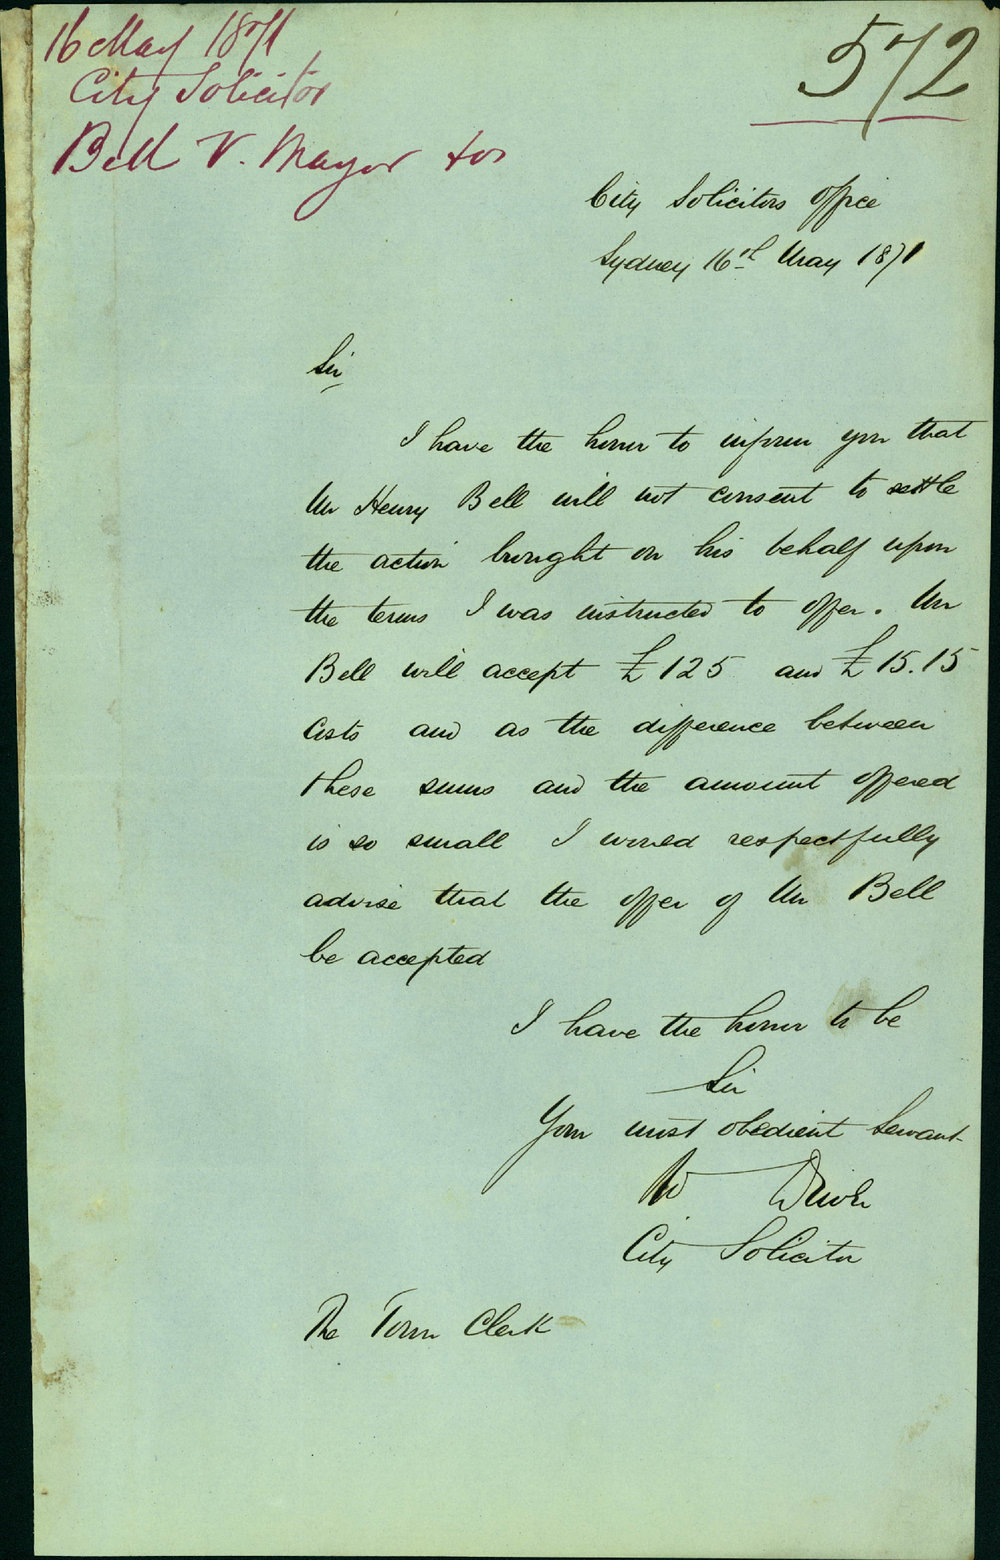 16 May 1871
City Solicitor
Bell V. Mayor &or
572
City Solicitors Office
Sydney 16th May 1871
Sir
I have the honor to inform you that
Mr Henry Bell will not consent to settle
the action brought on his behalf upon
the terms I was instructed to offer. Mr
Bell will accept £125 and £15.15
Costs and as the difference between
these sums and the amount offered
is so small I would respectfully
advise that the offer of Mr Bell
be accepted
I have the honor to be
Sir
Your most obedient Servant
W
City Solicitor
The Town Clerk